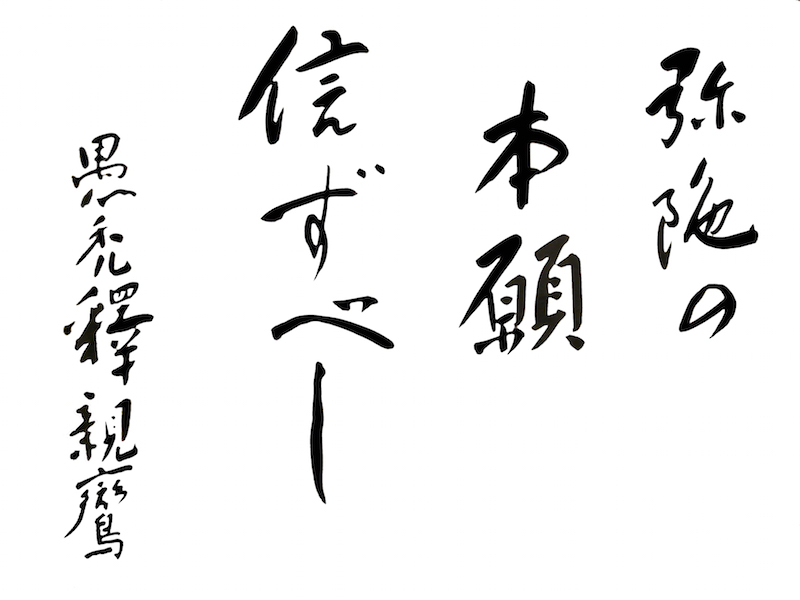 弥陀の
本願
信ずべし
愚禿釋親鸞